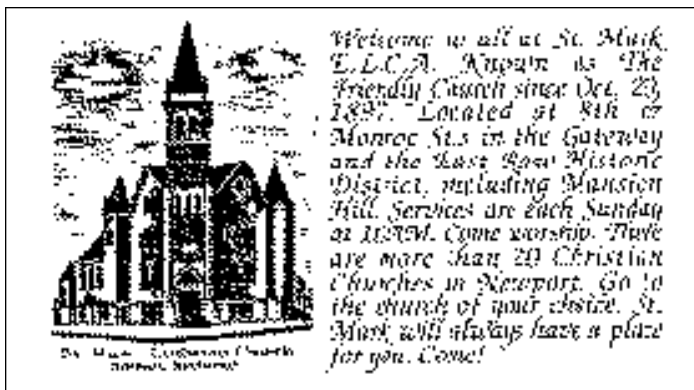 Welcome to all at St. Mark
E.L.C.A. Known as "The
Friendly Church since Oct. 23,
1897." Located at 8th &
Monroe St.s in the Gateway
and the East Row Historic
District, including Mansion
Hill. Services are each Sunday
at 11AM. Come worship. There
are more than 20 Christian
Churches in Newport. Go to
the church of your choice. St.
Mark will always have a place
for you. Come!
St. Mark Lutheran Church